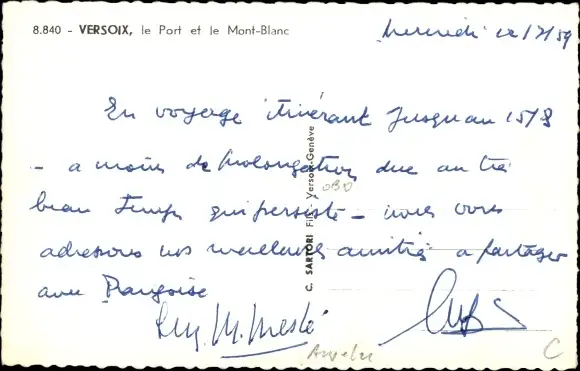 8.840 - VERSOIX, le Port et le Mont-Blanc
Mercredi 12/7/59
En voyage itinérant jusqu'au 15/8
- a moins de prolongation due au très
beau temps qui persiste - nous vous
adressons nos meilleures amitiés a partager
avec Françoise
M. Meslé
C. SARTORI Fils Versoix-Genève
C